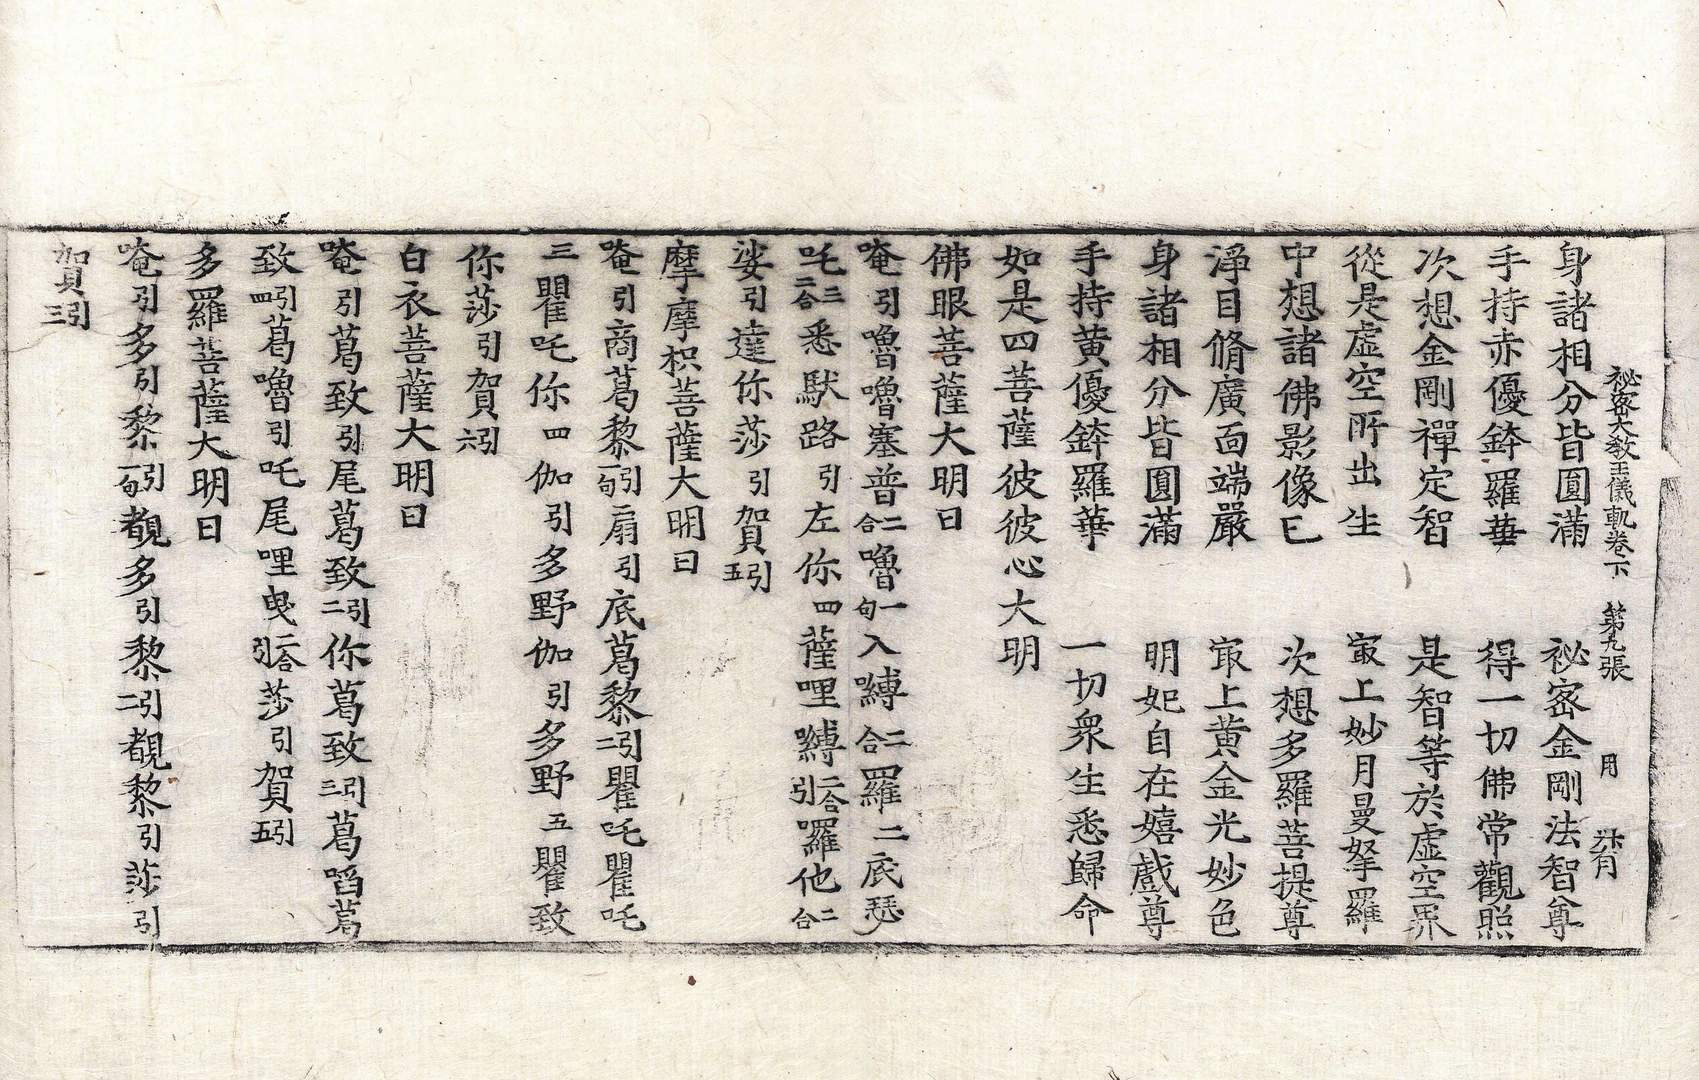 祕密大敎王儀軌卷下 第九張 用
身諸相分皆圓滿 祕密金剛法智尊
手持赤優鉢羅華 得一切佛常觀照
次想金剛禪定智 是智等於虛空界
從是虛空所出生 冣上妙月曼拏羅
中想諸佛影像已 次想多羅菩提尊
淨目脩廣面端嚴 冣上黃金光妙色
身諸相分皆圓滿 明妃自在嬉戲尊
手持黃優鉢羅華 一切衆生悉歸命
如是四菩薩彼彼心大明
佛眼菩薩大明曰
唵引嚕嚕塞普二合嚕一句入嚩二合羅二底瑟
吒二合三悉䭾路引左你四薩哩嚩二合引囉他二合
娑引達你莎引賀引五
摩摩枳菩薩大明曰
唵引商葛黎引一句扇引底葛黎引二瞿吒瞿吒
三瞿吒你四伽引多野伽引多野五瞿致
你莎引賀引六
白衣菩薩大明曰
唵引葛致引尾葛致引二你葛致引三葛㗖葛
致引四葛嚕引吒尾哩曳二合引莎引賀引五
多羅菩薩大明曰
唵引多引黎引一句覩多引黎引二覩黎引莎引
賀引三